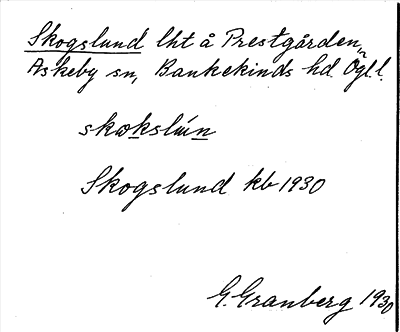 Skogslund lht å Prestgården,
Askeby sn, Bankekinds hd. Ögl.l.
Skogslund kb 1930
G. Granberg 1930